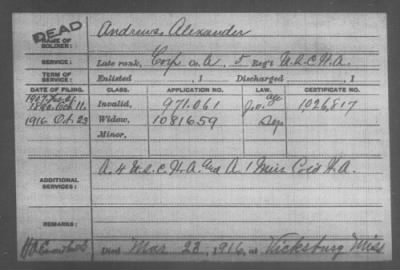 DEAD
NAME OF SOLDIER: Andrews Alexander
SERVICE: Late rank, Corp Co. A, 5 Reg't U.S.C.H.A.
TERM OF SERVICE: Enlisted , 1 Discharged , 1
DATE OF FILING. CLASS. APPLICATION NO. LAW. CERTIFICATE NO.
1907
1890. Oct. 11. Invalid, 971.061 age 1,026,817
1916. Oct. 23 Widow, 1081659
Minor,
ADDITIONAL SERVICES: A. 4 U.S.C.H.A. and A. 1 Miss Cold H.A.
REMARKS:
Died Mar 23, 1916, at Vicksburg Miss